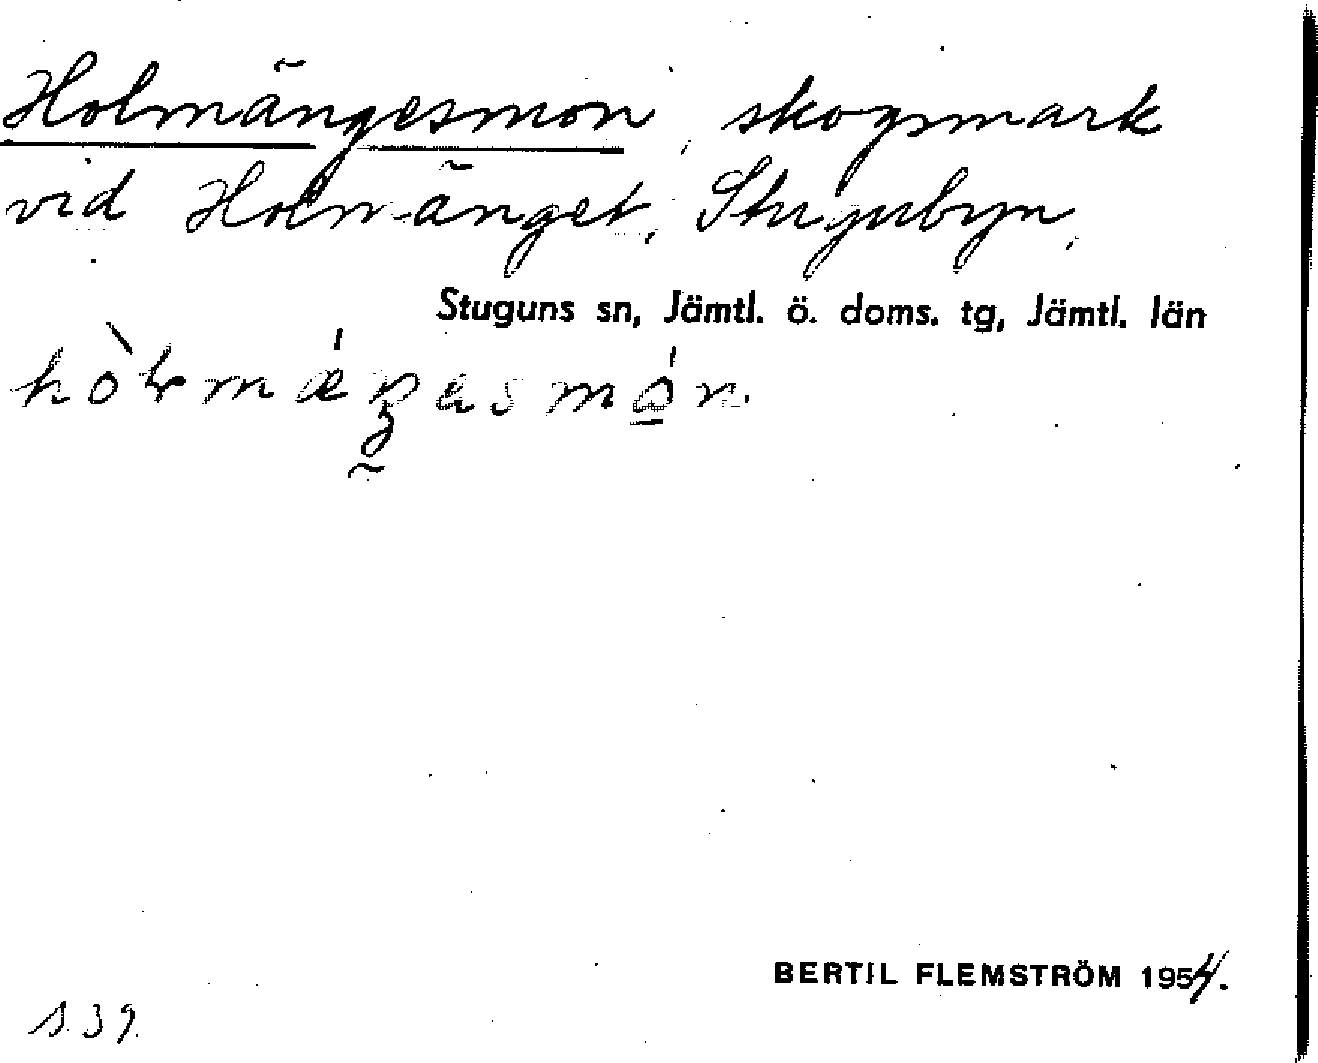 Holmängesmon, skogsmark
vid Holmänget, Stugubyn,
Stuguns sn, Jämtl. ö. doms. tg, Jämtl. län
BERTIL FLEMSTRÖM 1954.
s. 39.